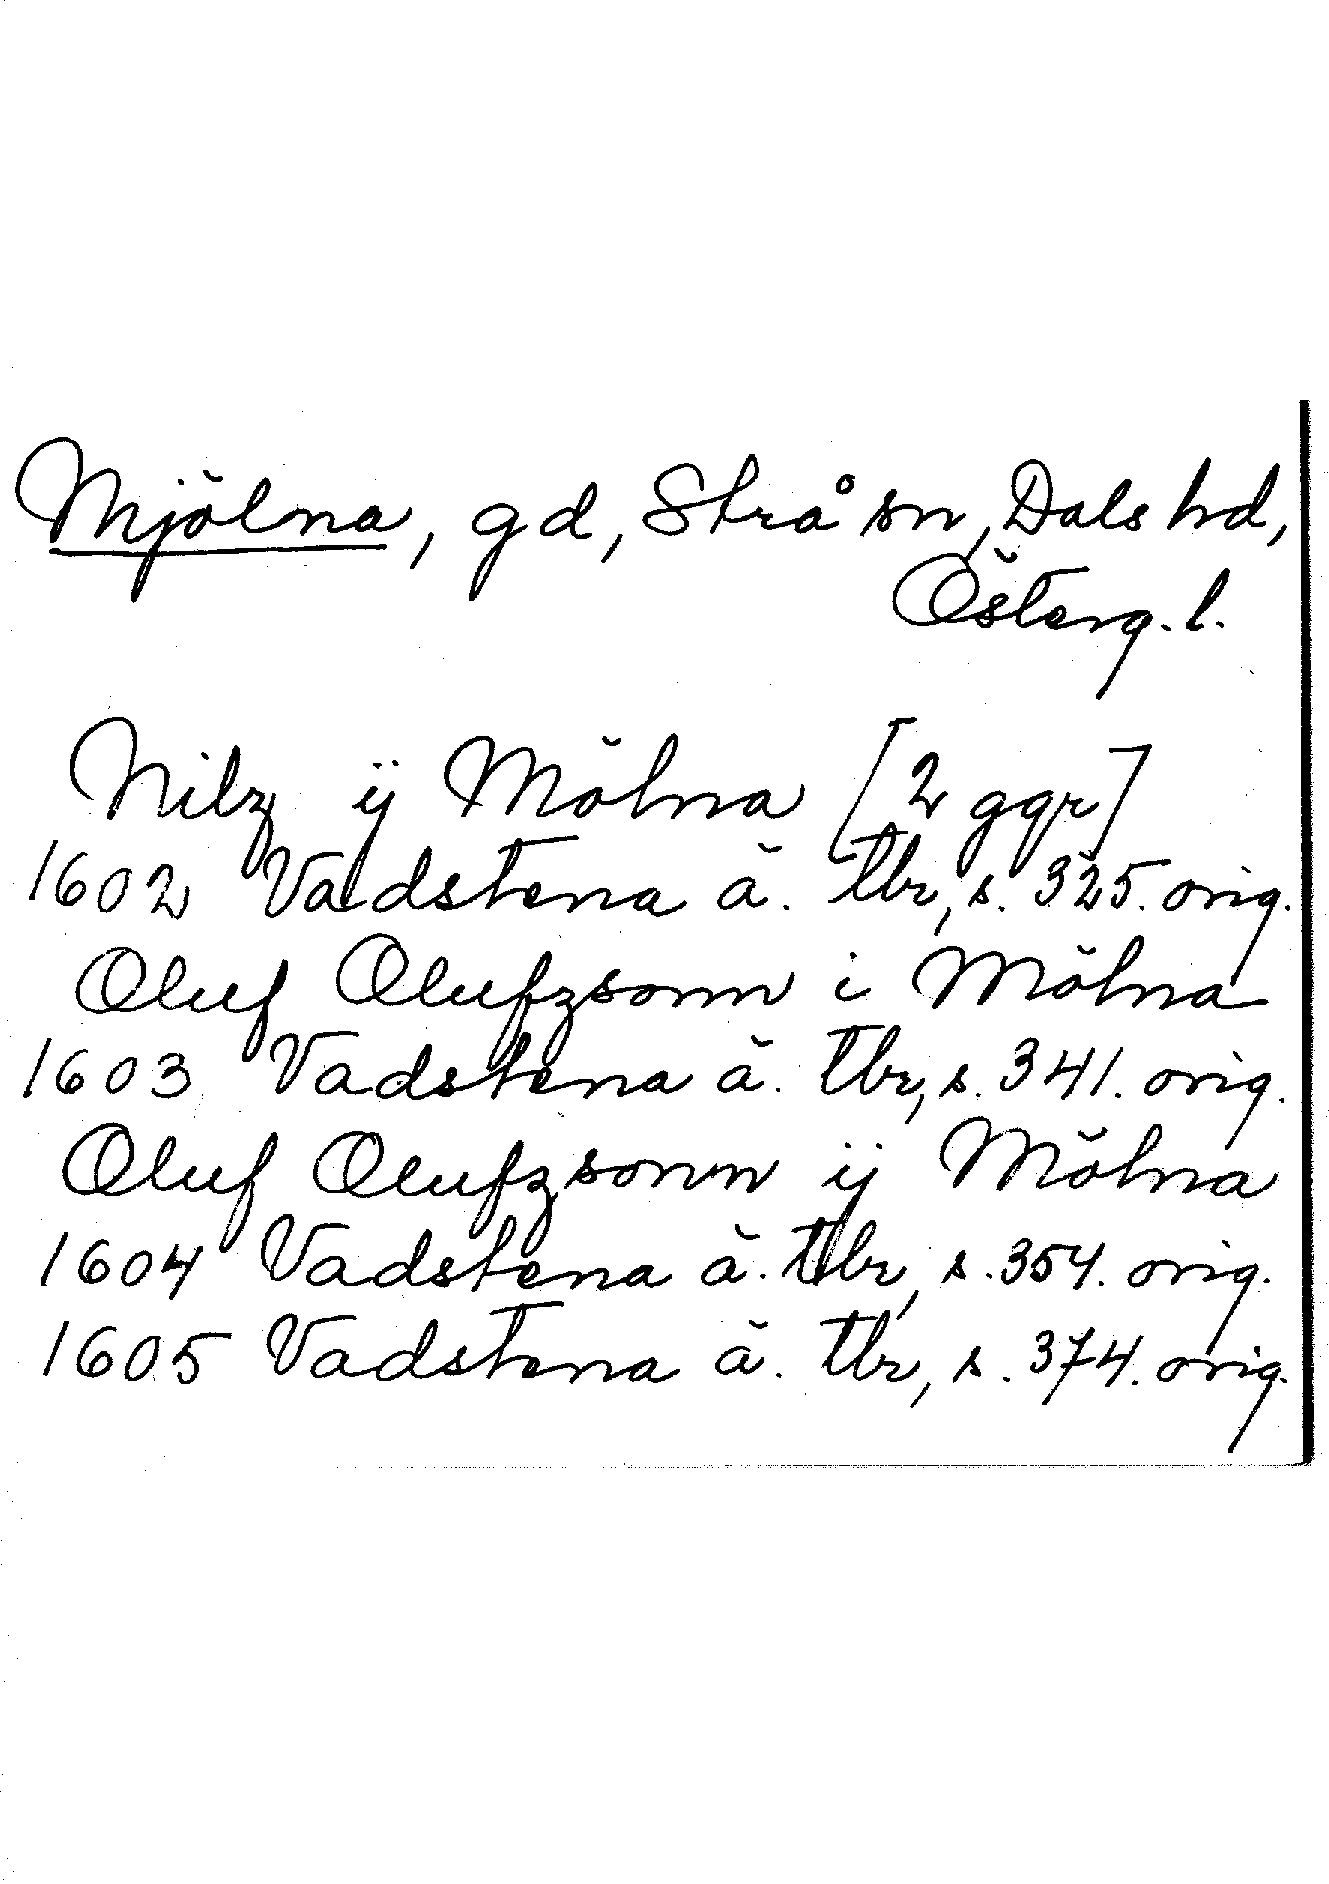 Mjölna, gd, Strå sn, Dals hd,
Österg. l.
Nilz ÿ Mölna [2 ggr]
1602 Vadstena ä. tbr, s. 325. orig.
Oluf Olufzsonn i Mölna
1603 Vadstena ä. tbr, s. 341. orig.
Oluf Olufzsonn ÿ Mölna
1604 Vadstena ä. tbr, s. 354. orig.
1605 Vadstena ä. tbr, s. 374. orig.